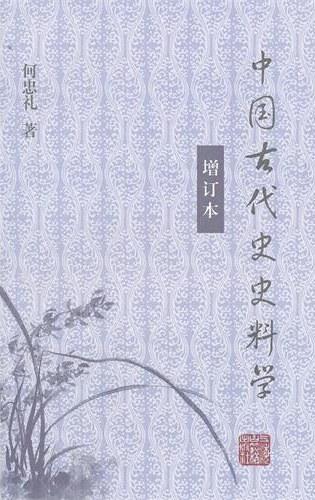 中国古代史史料学
增订本
何忠礼 著